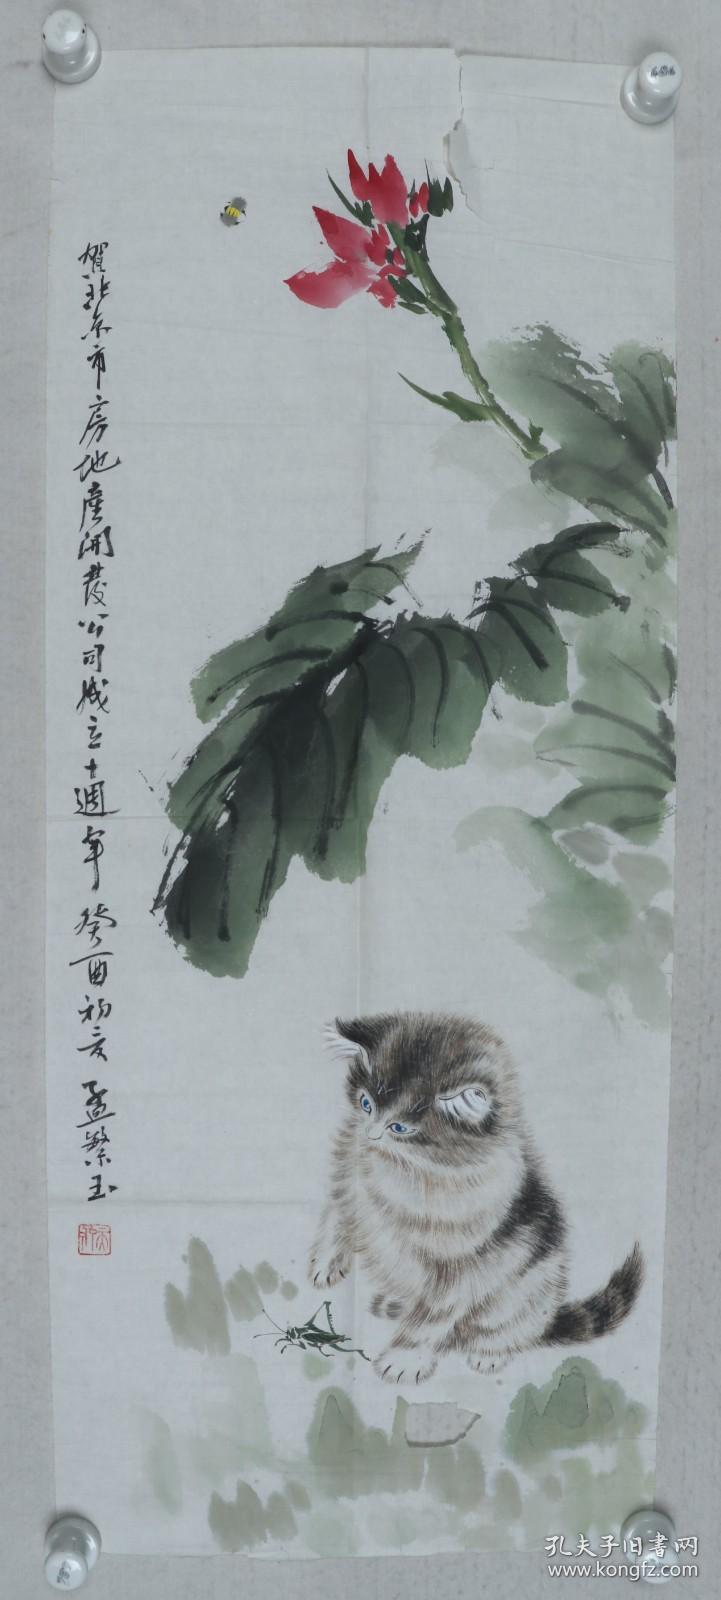 贺北京市房地産開發公司成立十週年 癸酉初夏 孟繁玉
孔夫子旧書网
www.kongfz.com